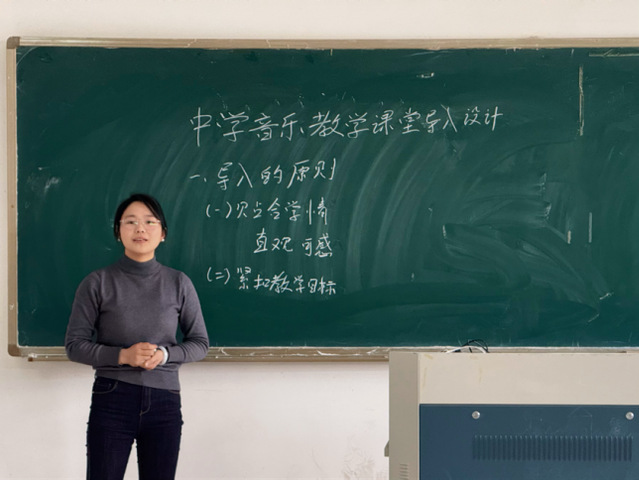 中学音乐教学课堂导入设计
一、导入的原则
(一)贝占合学情
直观可感
(二)紧扣教学目标